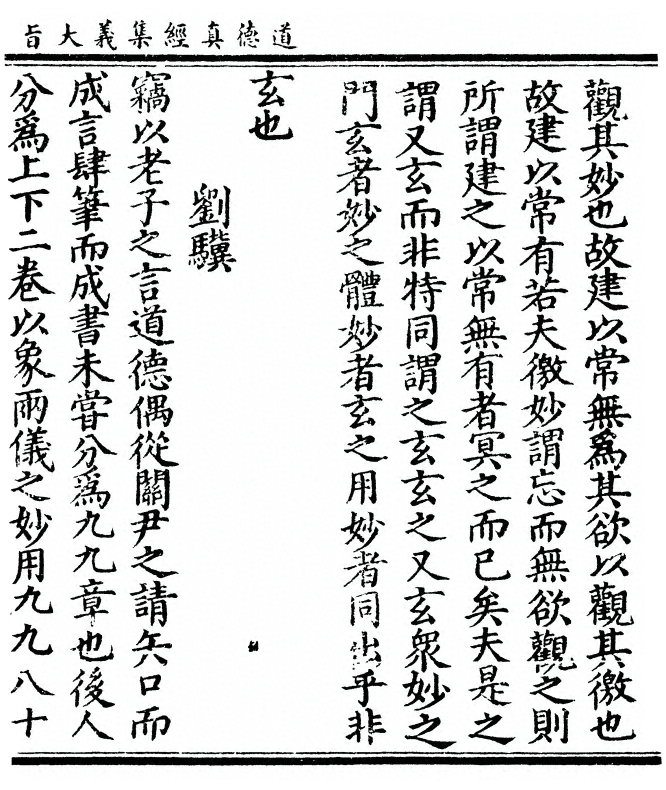 道德真經集義大旨
觀其妙也故建以常無為其欲以觀其徼也
故建以常有若夫徼妙謂忘而無欲觀之則
所謂建之以常無有者冥之而已矣夫是之
謂又玄而非特同謂之玄玄之又玄衆妙之
門玄者妙之體妙者玄之用妙者同出乎非
玄也
劉驥
竊以老子之言道德偶從關尹之請矢口而
成言肆筆而成書未嘗分為九九章也後人
分為上下二卷以象兩儀之妙用九九八十